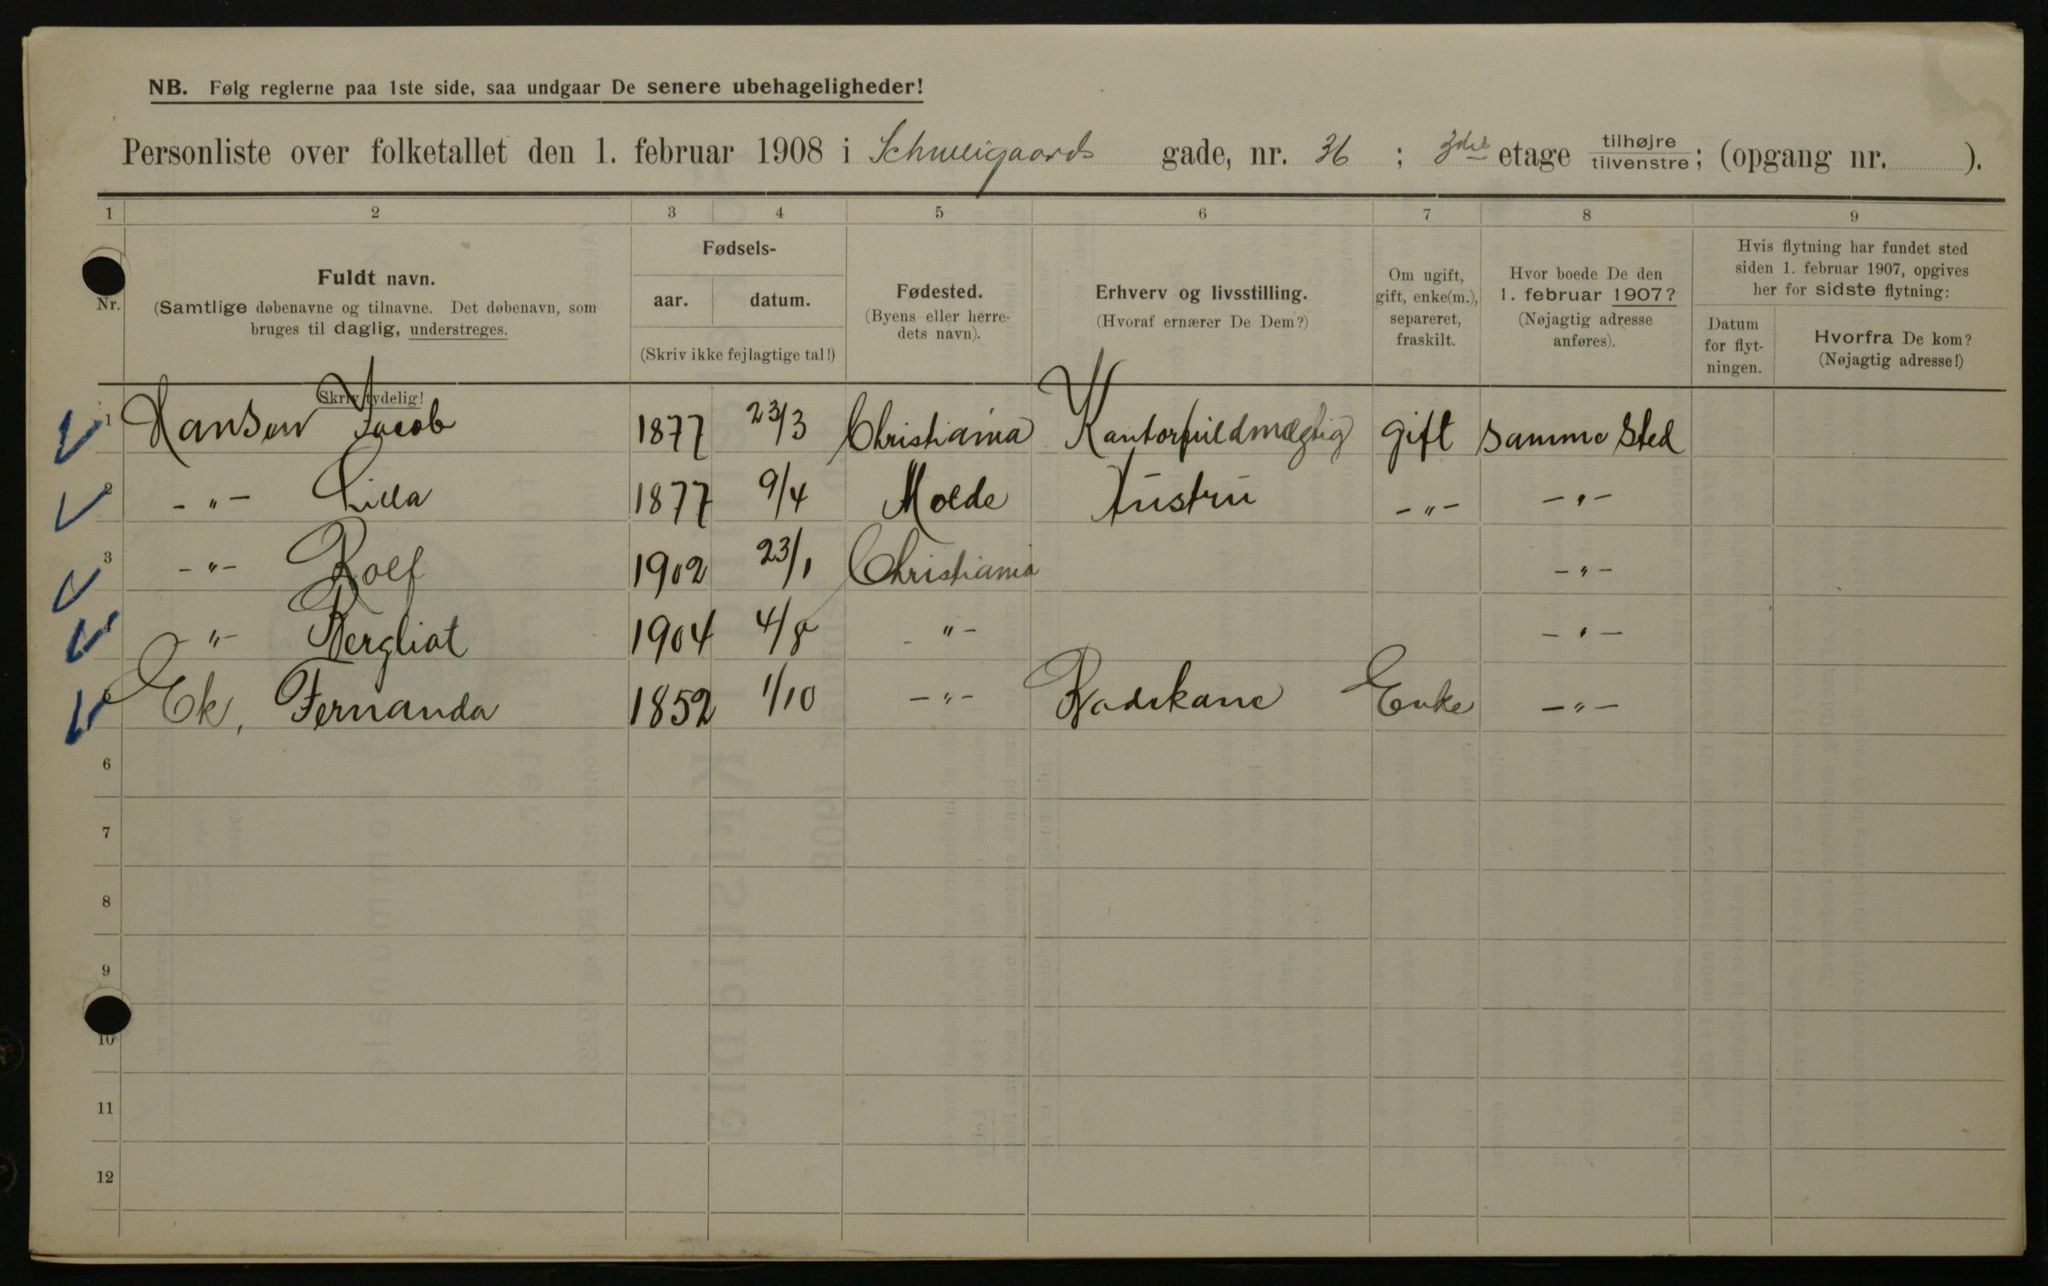 NB. Følg reglerne paa 1ste side, saa undgaar De senere ubehageligheder!
Personliste over folketallet den 1. februar 1908 i Schweigaards gade, nr. 36 ; 3die etage tilhøjre tilvenstre; (opgang nr. ).
1 2 3 4 5 6 7 8 9
Nr.
Fuldt navn.
(Samtlige døbenavne og tilnavne. Det døbenavn, som
bruges til daglig, understreges.
Skriv tydelig!
Fødsels-
aar. datum.
(Skriv ikke fejlagtige tal!)
Fødested.
(Byens eller herre-
dets navn).
Erhverv og livsstilling.
(Hvoraf ernærer De Dem?)
Om ugift,
gift, enke(m.),
separeret,
fraskilt.
Hvor boede De den
1. februar 1907?
(Nøjagtig adresse
anføres).
Hvis flytning har fundet sted
siden 1. februar 1907, opgives
her for sidste flytning:
Datum
for flyt-
ningen.
Hvorfra De kom?
(Nøjagtig adresse!)
1 Hansen Jacob 1877 23/3 Christiania Kontorfuldmægtig gift samme sted
2 -"- Lilla 1877 9/4 Molde Hustru -"- -"-
3 -"- Rolf 1902 23/1 Christiania -"-
4 "- Bergliot 1904 4/8 -"- -"-
5 Ek, Fernanda 1852 1/10 -"- Badekone Enke -"-
6
7
8
9
10
11
12